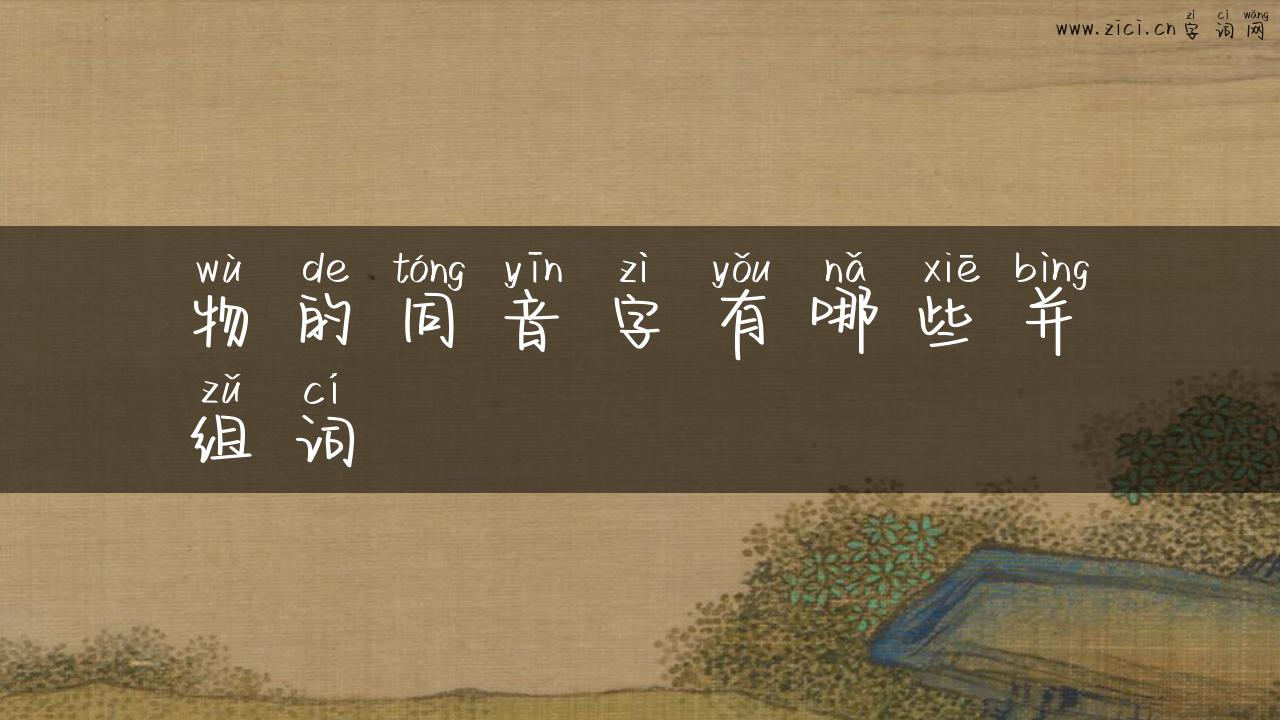 zì cí wǎng
www.zici.cn字词网
wù de tóng yīn zì yǒu nǎ xiē bìng
物的同音字有哪些并
zǔ cí
组词